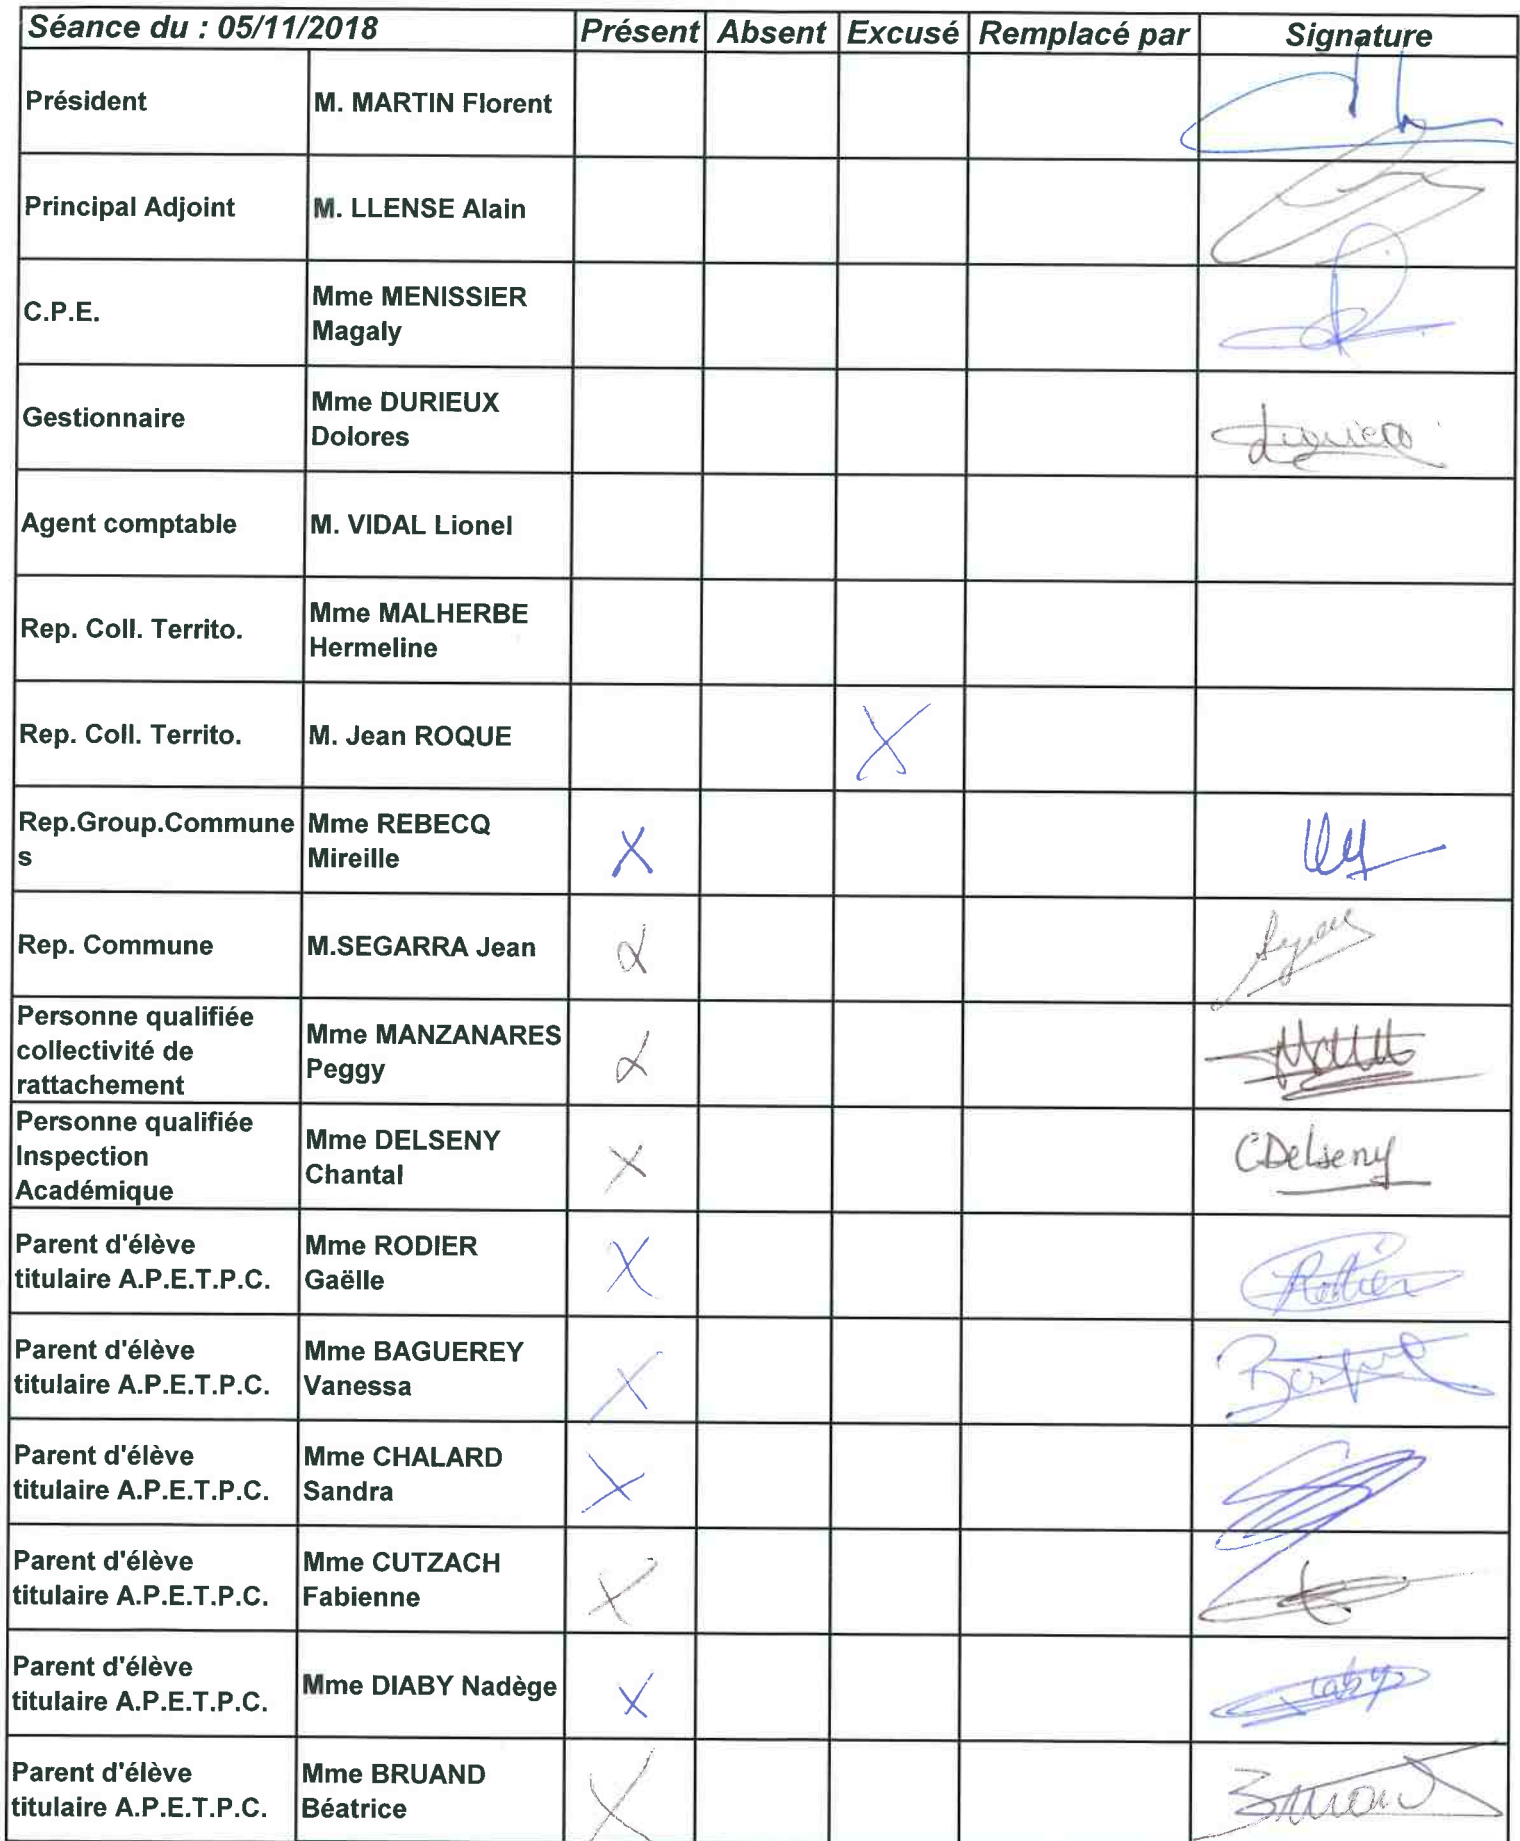 Séance du : 05/11/2018 Présent Absent Excusé Remplacé par Signature
Président M. MARTIN Florent
Principal Adjoint M. LLENSE Alain
C.P.E. Mme MENISSIER
Magaly
Gestionnaire Mme DURIEUX
Dolores
Agent comptable M. VIDAL Lionel
Rep. Coll. Territo. Mme MALHERBE
Hermeline
Rep. Coll. Territo. M. Jean ROQUE X
Rep.Group.Commune
s
Mme REBECQ
Mireille
X
Rep. Commune M.SEGARRA Jean X
Personne qualifiée
collectivité de
rattachement
Mme MANZANARES
Peggy
X
Personne qualifiée
Inspection
Académique
Mme DELSENY
Chantal
X
CDelseny
Parent d'élève
titulaire A.P.E.T.P.C.
Mme RODIER
Gaëlle
X
Rodier
Parent d'élève
titulaire A.P.E.T.P.C.
Mme BAGUEREY
Vanessa
X
Parent d'élève
titulaire A.P.E.T.P.C.
Mme CHALARD
Sandra
X
Parent d'élève
titulaire A.P.E.T.P.C.
Mme CUTZACH
Fabienne
X
Parent d'élève
titulaire A.P.E.T.P.C.
Mme DIABY Nadège
X
Parent d'élève
titulaire A.P.E.T.P.C.
Mme BRUAND
Béatrice
X